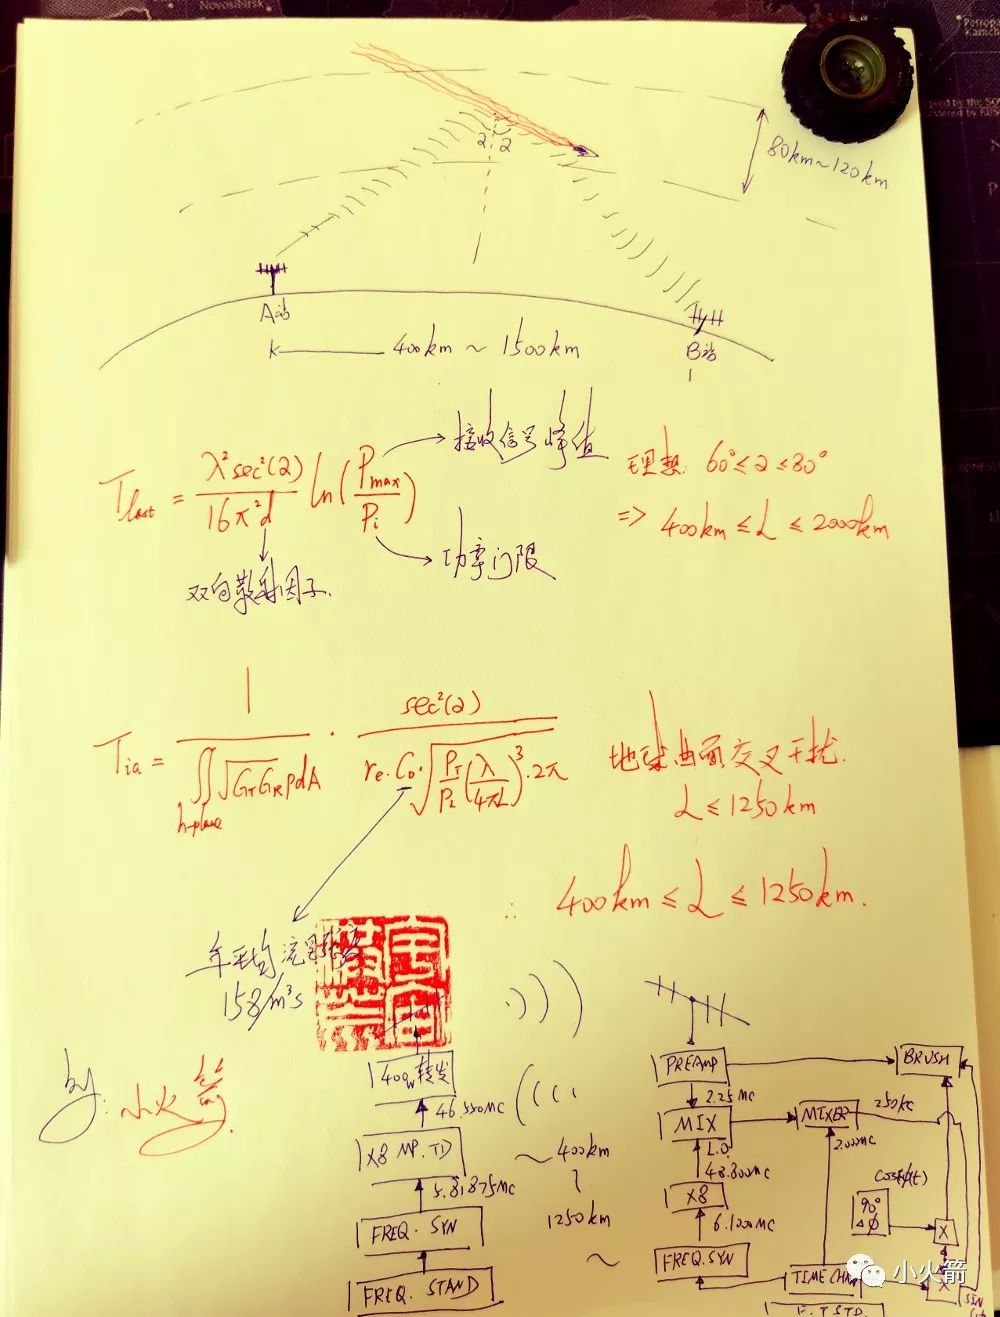 Novosibirsk
80km~120km
2 2
A站
400km ~ 1500km
B站
T last = λ²sec²(2) / 16π²d ln(Pmax / Pi)
接收信号峰值
功率门限
双向散射因子.
理想: 60°≤2≤80°
=> 400km ≤ L ≤ 2000km
Tia = 1 / ∬h-plane √GTGR pdA · sec²(2) / re·C0·√PT/PL (λ/4πL)³·2π
地球曲面交叉干扰.
L ≤ 1250km
∴ 400km ≤ L ≤ 1250km.
年平均流星
158/m³s
by: 小火箭.
400W 转发
46.550MC
X8 MP. TD
5.81875MC
FREQ. SYN
FREQ. STAND
~ 400km
~
1250km
~
PREAMP
2.25MC
MIX
L.O.
48.800MC
X8
6.1000MC
FREQ.SYN
BRUSH
MIXER
250KC
2.000MC
COS
90°
Δφ
X
X
SIN
TIME
小火箭